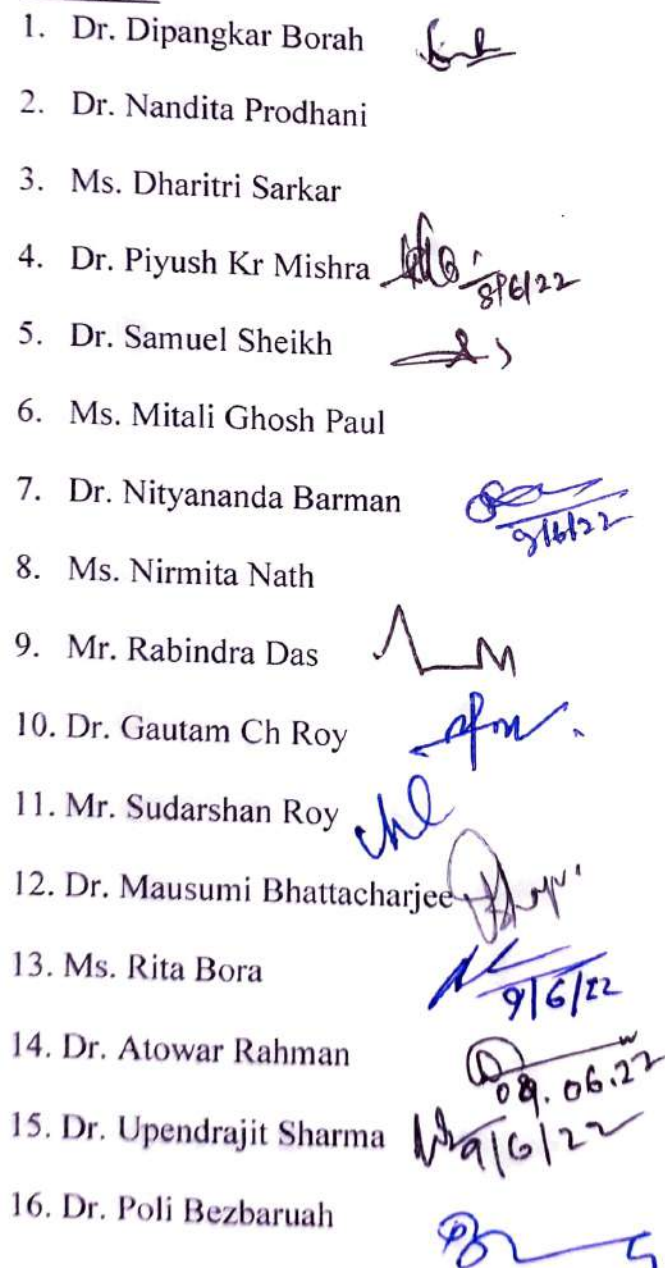 1. Dr. Dipangkar Borah
2. Dr. Nandita Prodhani
3. Ms. Dharitri Sarkar
4. Dr. Piyush Kr Mishra 8/6/22
5. Dr. Samuel Sheikh
6. Ms. Mitali Ghosh Paul
7. Dr. Nityananda Barman 9/6/22
8. Ms. Nirmita Nath
9. Mr. Rabindra Das
10. Dr. Gautam Ch Roy
11. Mr. Sudarshan Roy
12. Dr. Mausumi Bhattacharjee
13. Ms. Rita Bora 9/6/22
14. Dr. Atowar Rahman 09.06.22
15. Dr. Upendrajit Sharma 9/6/22
16. Dr. Poli Bezbaruah